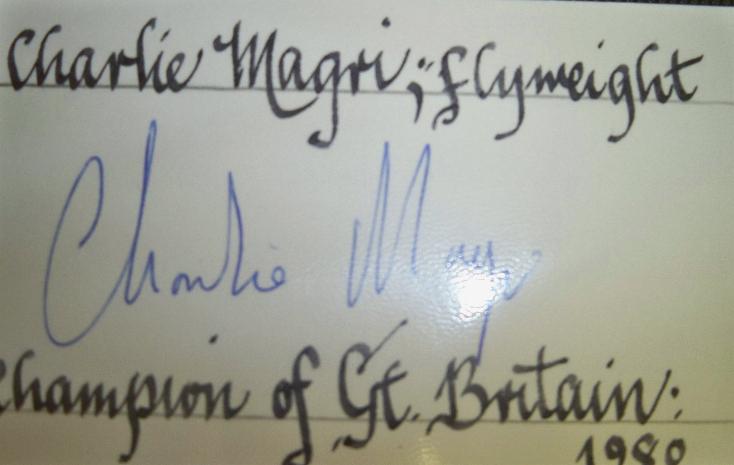 Charlie Magri; flyweight
Charlie Magri
Champion of Gt. Britain:
1980